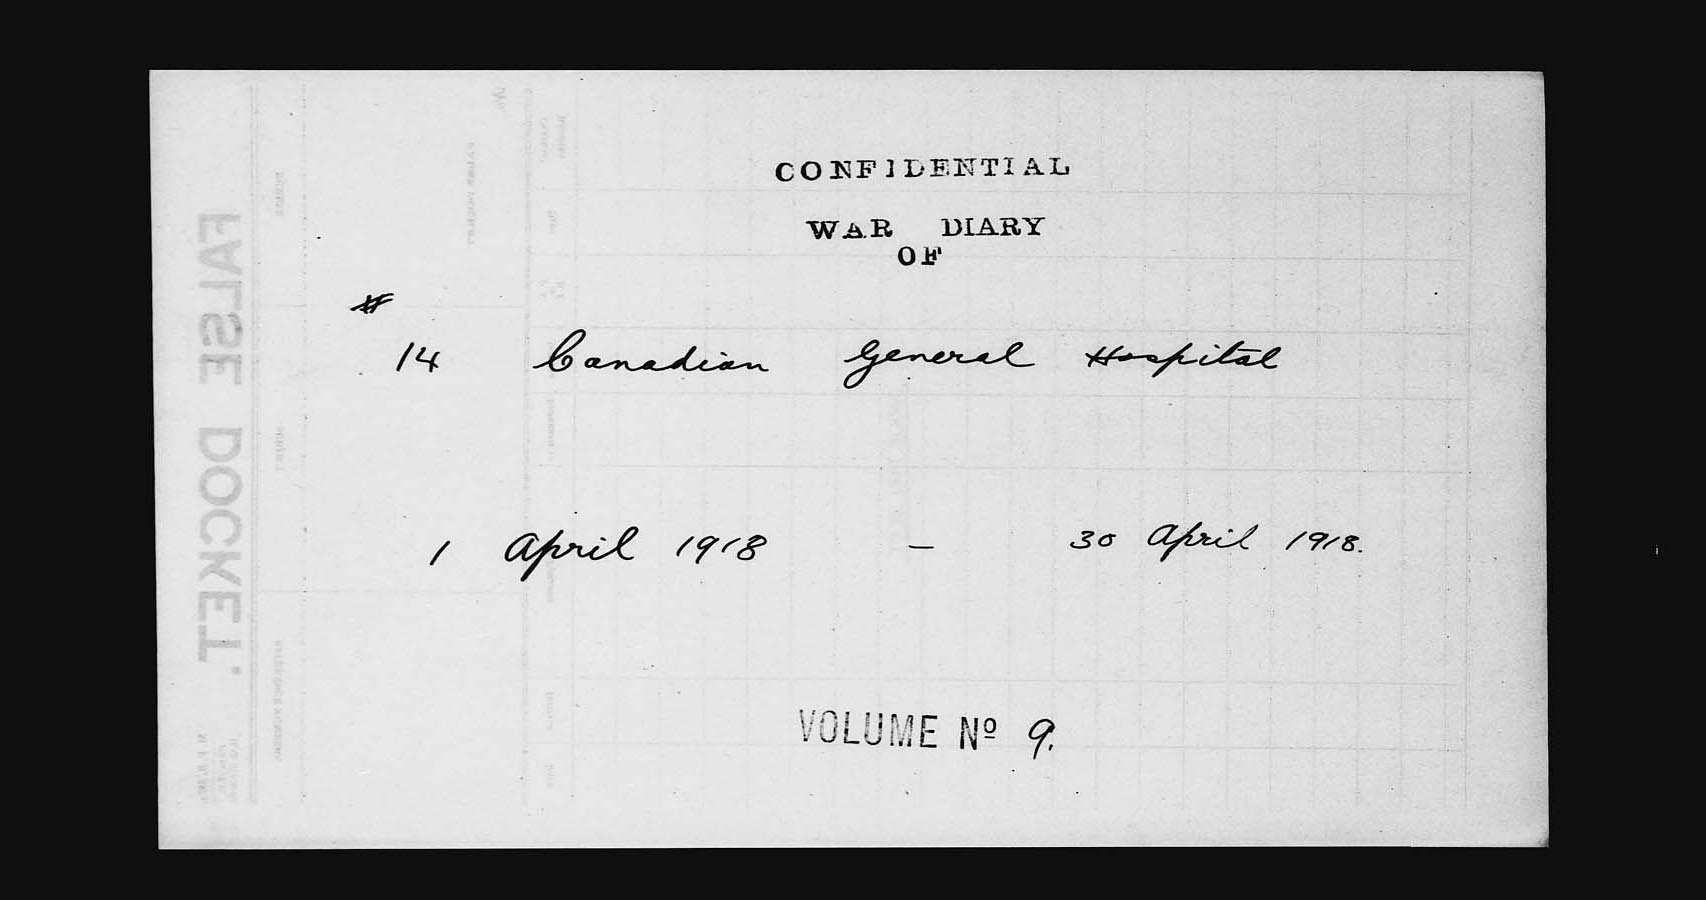 CONFIDENTIAL
WAR DIARY
OF
#
14 Canadian General Hospital
1 April 1918 — 30 April 1918.
VOLUME Nº 9.
FALSE DOCKET